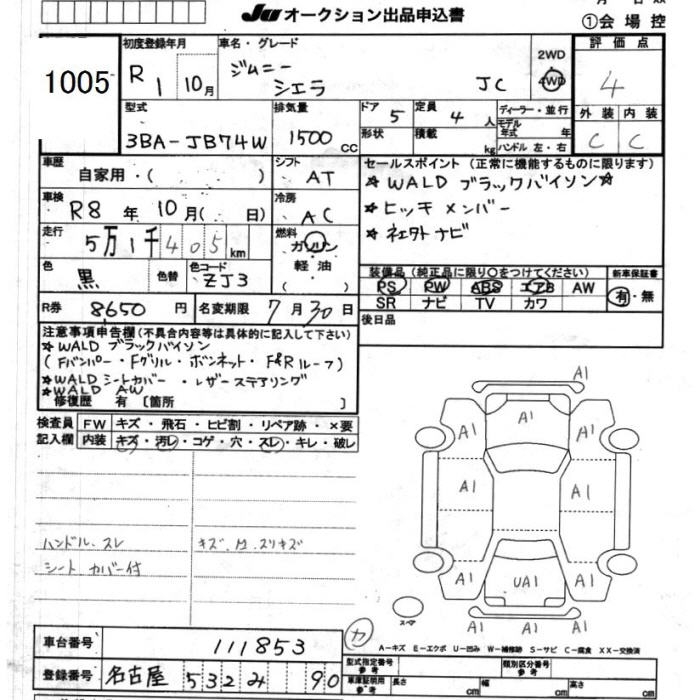 JU オークション出品申込書
①会場控
1005
初度登録年月 R1 10月
車名・グレード ジムニー シエラ JC
2WD 4WD
評価点 4
型式 3BA-JB74W
排気量 1500 cc
ドア 5 定員 4 人
形状 積載 kg
ディーラー・並行
モデル年式 年
ハンドル 左・右
外装 内装
C C
車歴 自家用・( )
シフト AT
セールスポイント (正常に機能するものに限ります)
☆WALD ブラックバイソン☆
☆ヒッチメンバー
☆社外ナビ
車検 R8年 10月( 日)
冷房 AC
走行 5万1千405km
燃料 ガソリン 軽油 ( )
色 黒 色替 色コード ZJ3
装備品(純正品に限り○をつけてください) 新車保証書
PS PW ABS エアB AW 有・無
SR ナビ TV カワ
R券 8650円 名変期限 7月30日
後日品
注意事項申告欄(不具合内容等は具体的に記入して下さい)
☆WALD ブラックバイソン
(Fバンパー・Fグリル・ボンネット・F&Rルーフ)
☆WALD シートカバー ・レザーステアリング
☆WALD AW
修復歴 有〔箇所 〕
検査員記入欄 FW キズ・飛石・ヒビ割・リペア跡・×要
内装 キズ・汚レ・コゲ・穴・スレ・キレ・破レ
ハンドル、スレ
シートカバー付
A1
A1
A1 A1
A1 A1
A1 UA1 A1
A1 A1 A1
スペア
A-キズ E-エクボ U-凹み W-補修跡 S-サビ C-腐食 XX-交換済
車台番号 111853
登録番号 名古屋 532み 90
型式指定番号 参考 類別区分番号 参考
車庫証明用 参考 長さ 幅 高さ